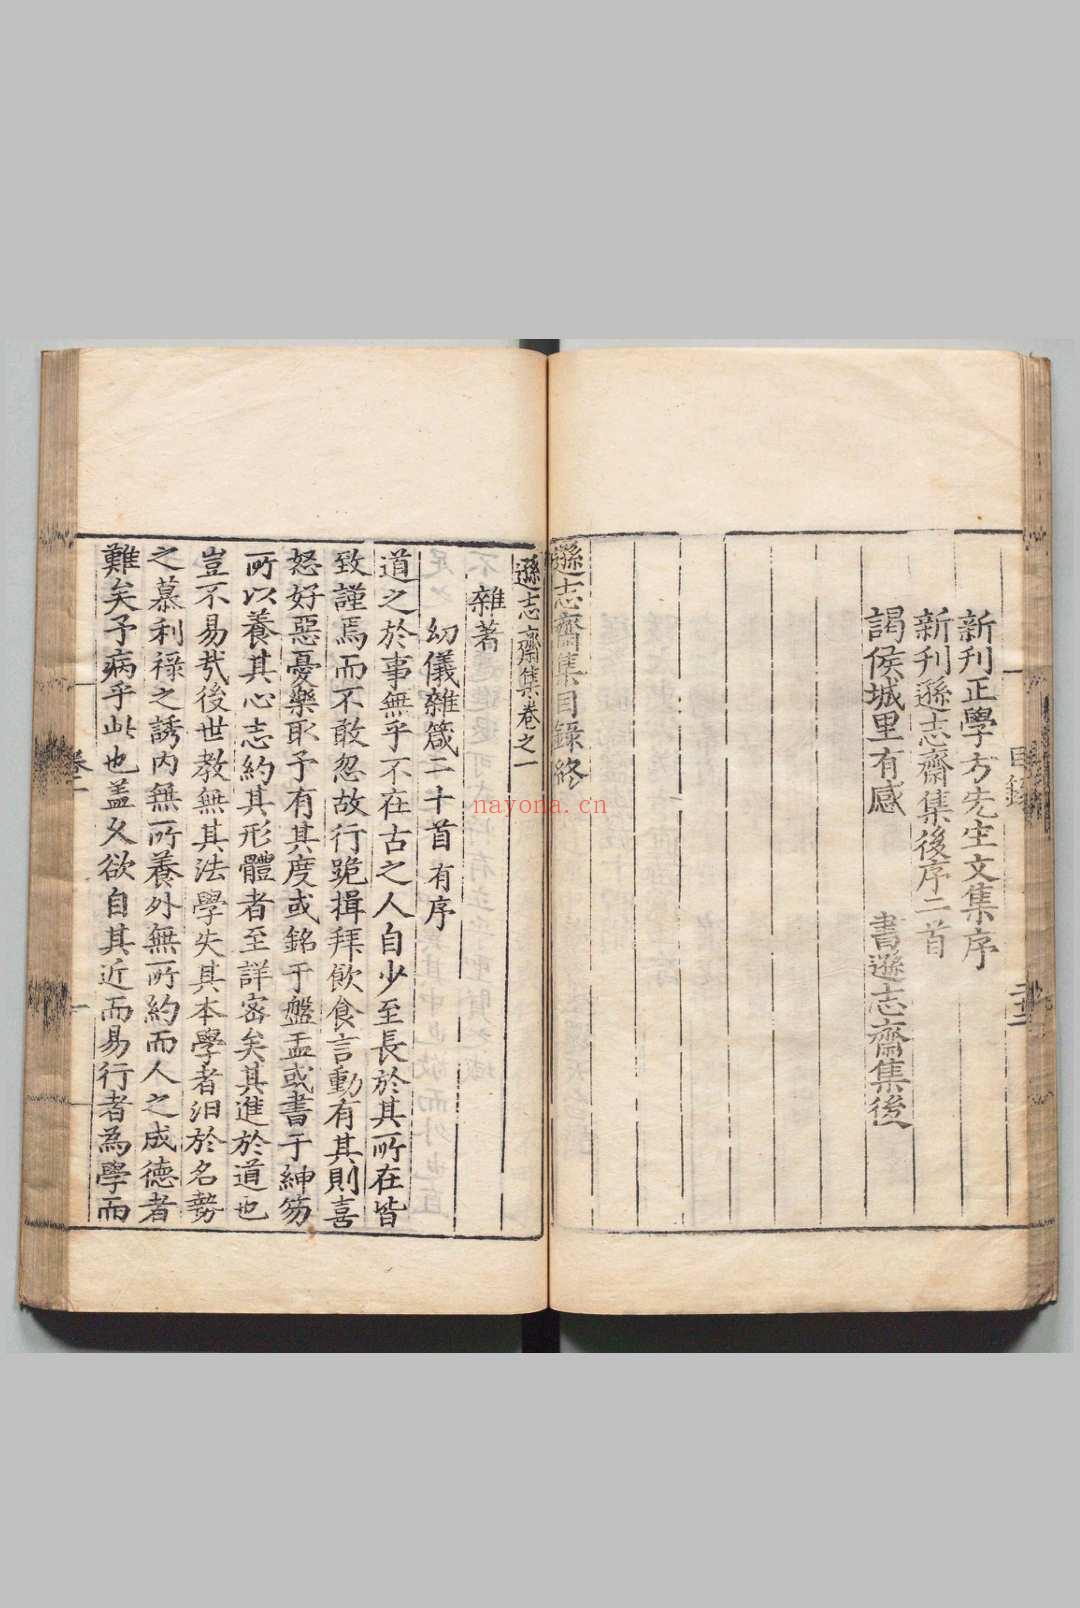 新刊正學方先生文集序
新刊遜志齋集後序二首
謁侯城里有感 書遜志齋集後
遜志齋集目錄終
目錄
遜志齋集卷之一
雜著
幼儀雜箴二十首有序
道之於事無乎不在古之人自少至長於其所在皆
致謹焉而不敢忽故行跪揖拜飲食言動有其則喜
怒好惡憂樂取予有其度或銘于盤盂或書于紳笏
所以養其心志約其形體者至詳密矣其進於道也
豈不易㢤後世教無其法學失其本學者汨於名勢
之慕利祿之誘內無所養外無所約而人之成德者
難矣予病乎此也盖久欲自其近而易行者為學而
卷一
一
nayona.cn